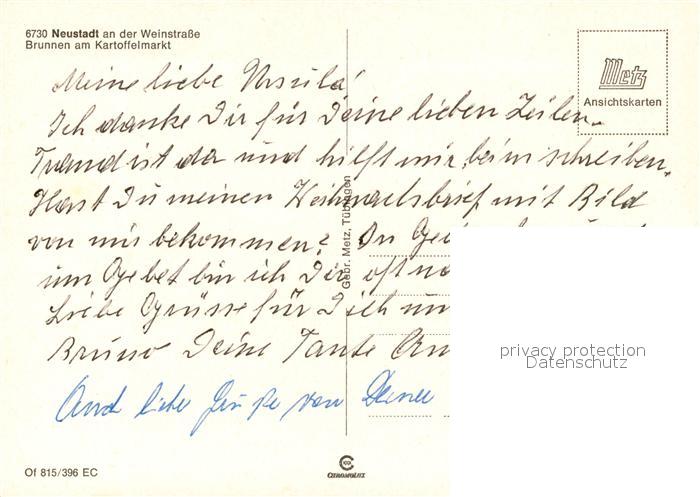 6730 Neustadt an der Weinstraße
Brunnen am Kartoffelmarkt
Metz
Ansichtskarten
Meine liebe Ursula!
Ich danke Dir für Deine lieben Zeilen.
Traud ist da und hilft mir beim schreiben.
Hast Du meinen Weihnachtsbrief mit Bild
von mir bekommen? In
im Gebet bin ich Dir oft
Liebe Grüsse für Dich
Bruno Deine Tante
Auch liebe Grüße von Deiner
Gebr. Metz, Tübingen
privacy protection
Datenschutz
Of 815/396 EC
CHROMOLUX